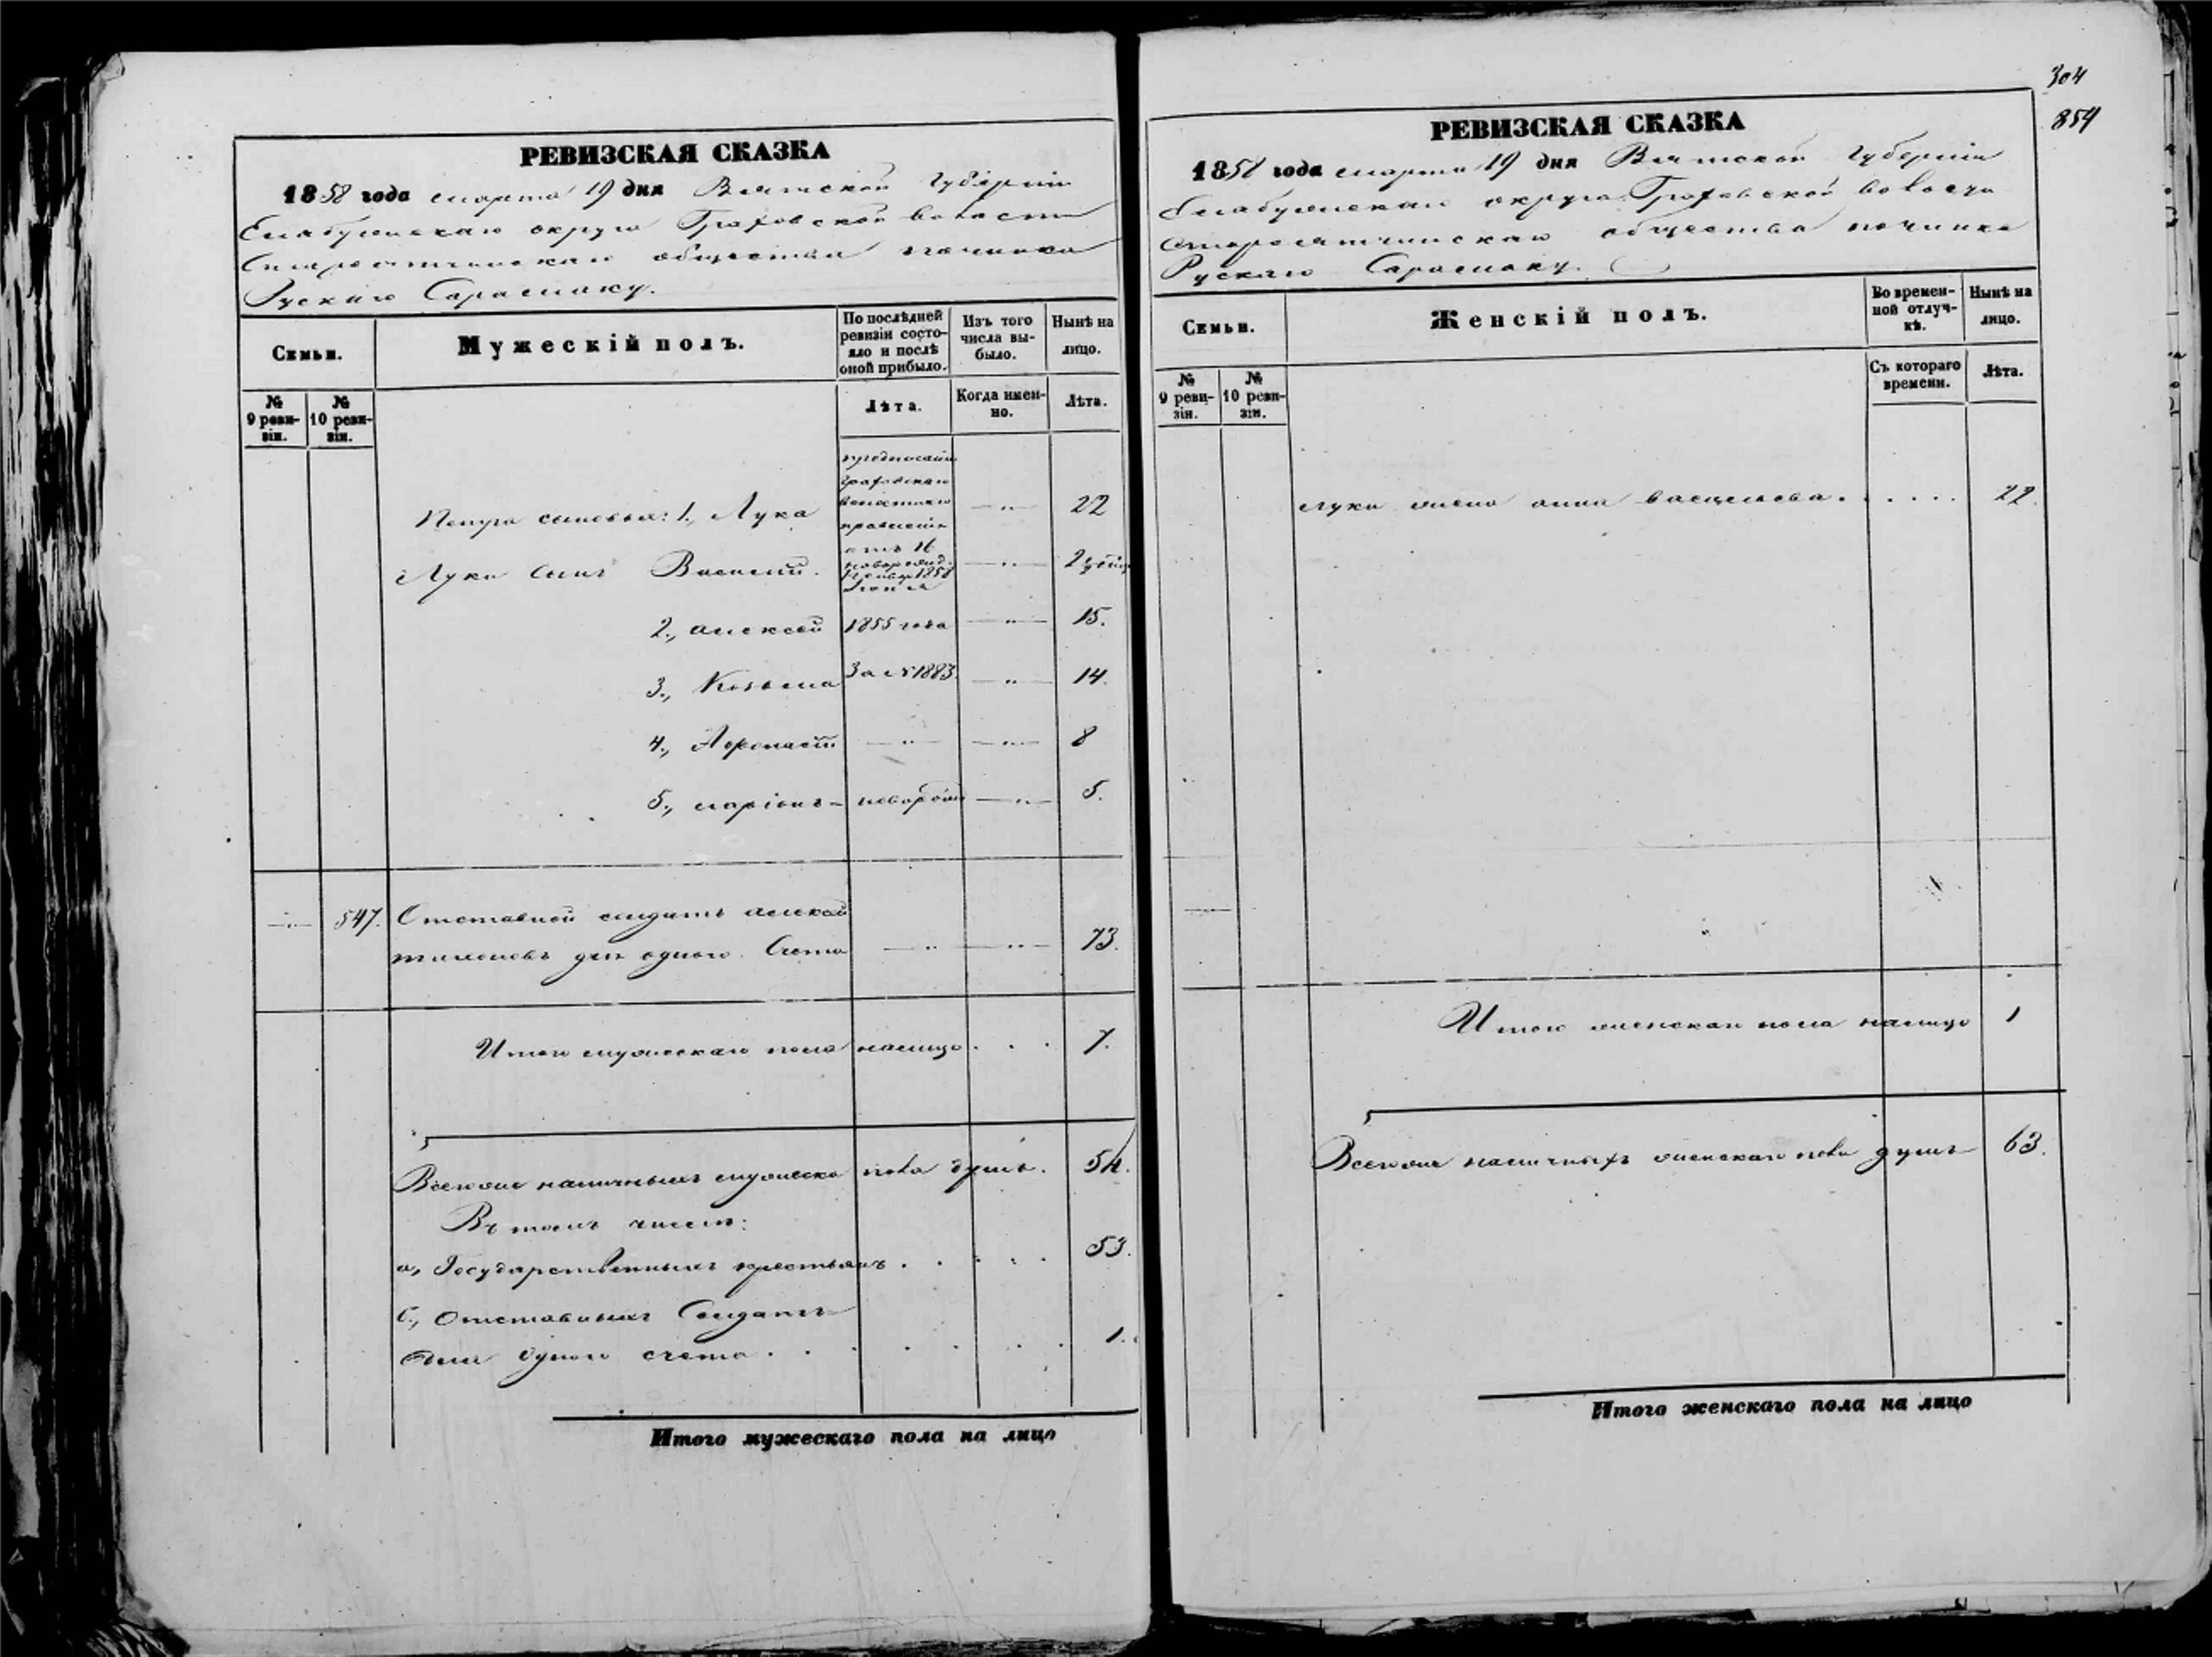 304
854
РЕВИЗСКАЯ СКАЗКА
1858 года марта 19 дня Вятской Губерніи
Елабужскаго округа Граховской волости
Староятчинскаго общества починка
Рускаго Сарамаку.
Семьи.
Мужескій полъ.
По послѣдней ревизіи состояло и послѣ оной прибыло.
Изъ того числа выбыло.
Нынѣ на лицо.
№ 9 ревизіи.
№ 10 ревизіи.
Лѣта.
Когда именно.
Лѣта.
Граховскаго
волостнаго
правленія
Петра сыновья: 1., Лука — „ — 22
отъ 16
Луки сынъ Василій. новорожд. — „ — 2
2., алексей 1855 года — „ — 15.
3., Козьма За № 1883. — „ — 14.
4., — „ — — „ — 8
5., ларіонъ - — „ — 5.
— „ — 547. Отставной солдатъ алексей
тимоновъ для одного Счета — „ — — „ — 73.
Итого мужескаго пола налицо . . . 7.
Всего наличныхъ мужеска пола душъ. 54.
Въ томъ числѣ:
а, Государственныхъ крестьянъ . . . . . 53.
б., Отставныхъ Солдатъ
для одного счета . . . . . . 1.
Итого мужескаго пола на лицо
РЕВИЗСКАЯ СКАЗКА
1858 года марта 19 дня Вятской Губерніи
Елабужскаго округа Граховской волости
Староятчинскаго общества починка
Рускаго Сарамаку.
Семьи.
Женскій полъ.
Во временной отлучкѣ.
Нынѣ на лицо.
№ 9 ревизіи.
№ 10 ревизіи.
Съ котораго времени.
Лѣта.
Луки жена анна васильева . . . . . 22.
Итого женскаго пола налицо 1
Всего наличныхъ женскаго пола душъ 63.
Итого женскаго пола на лицо